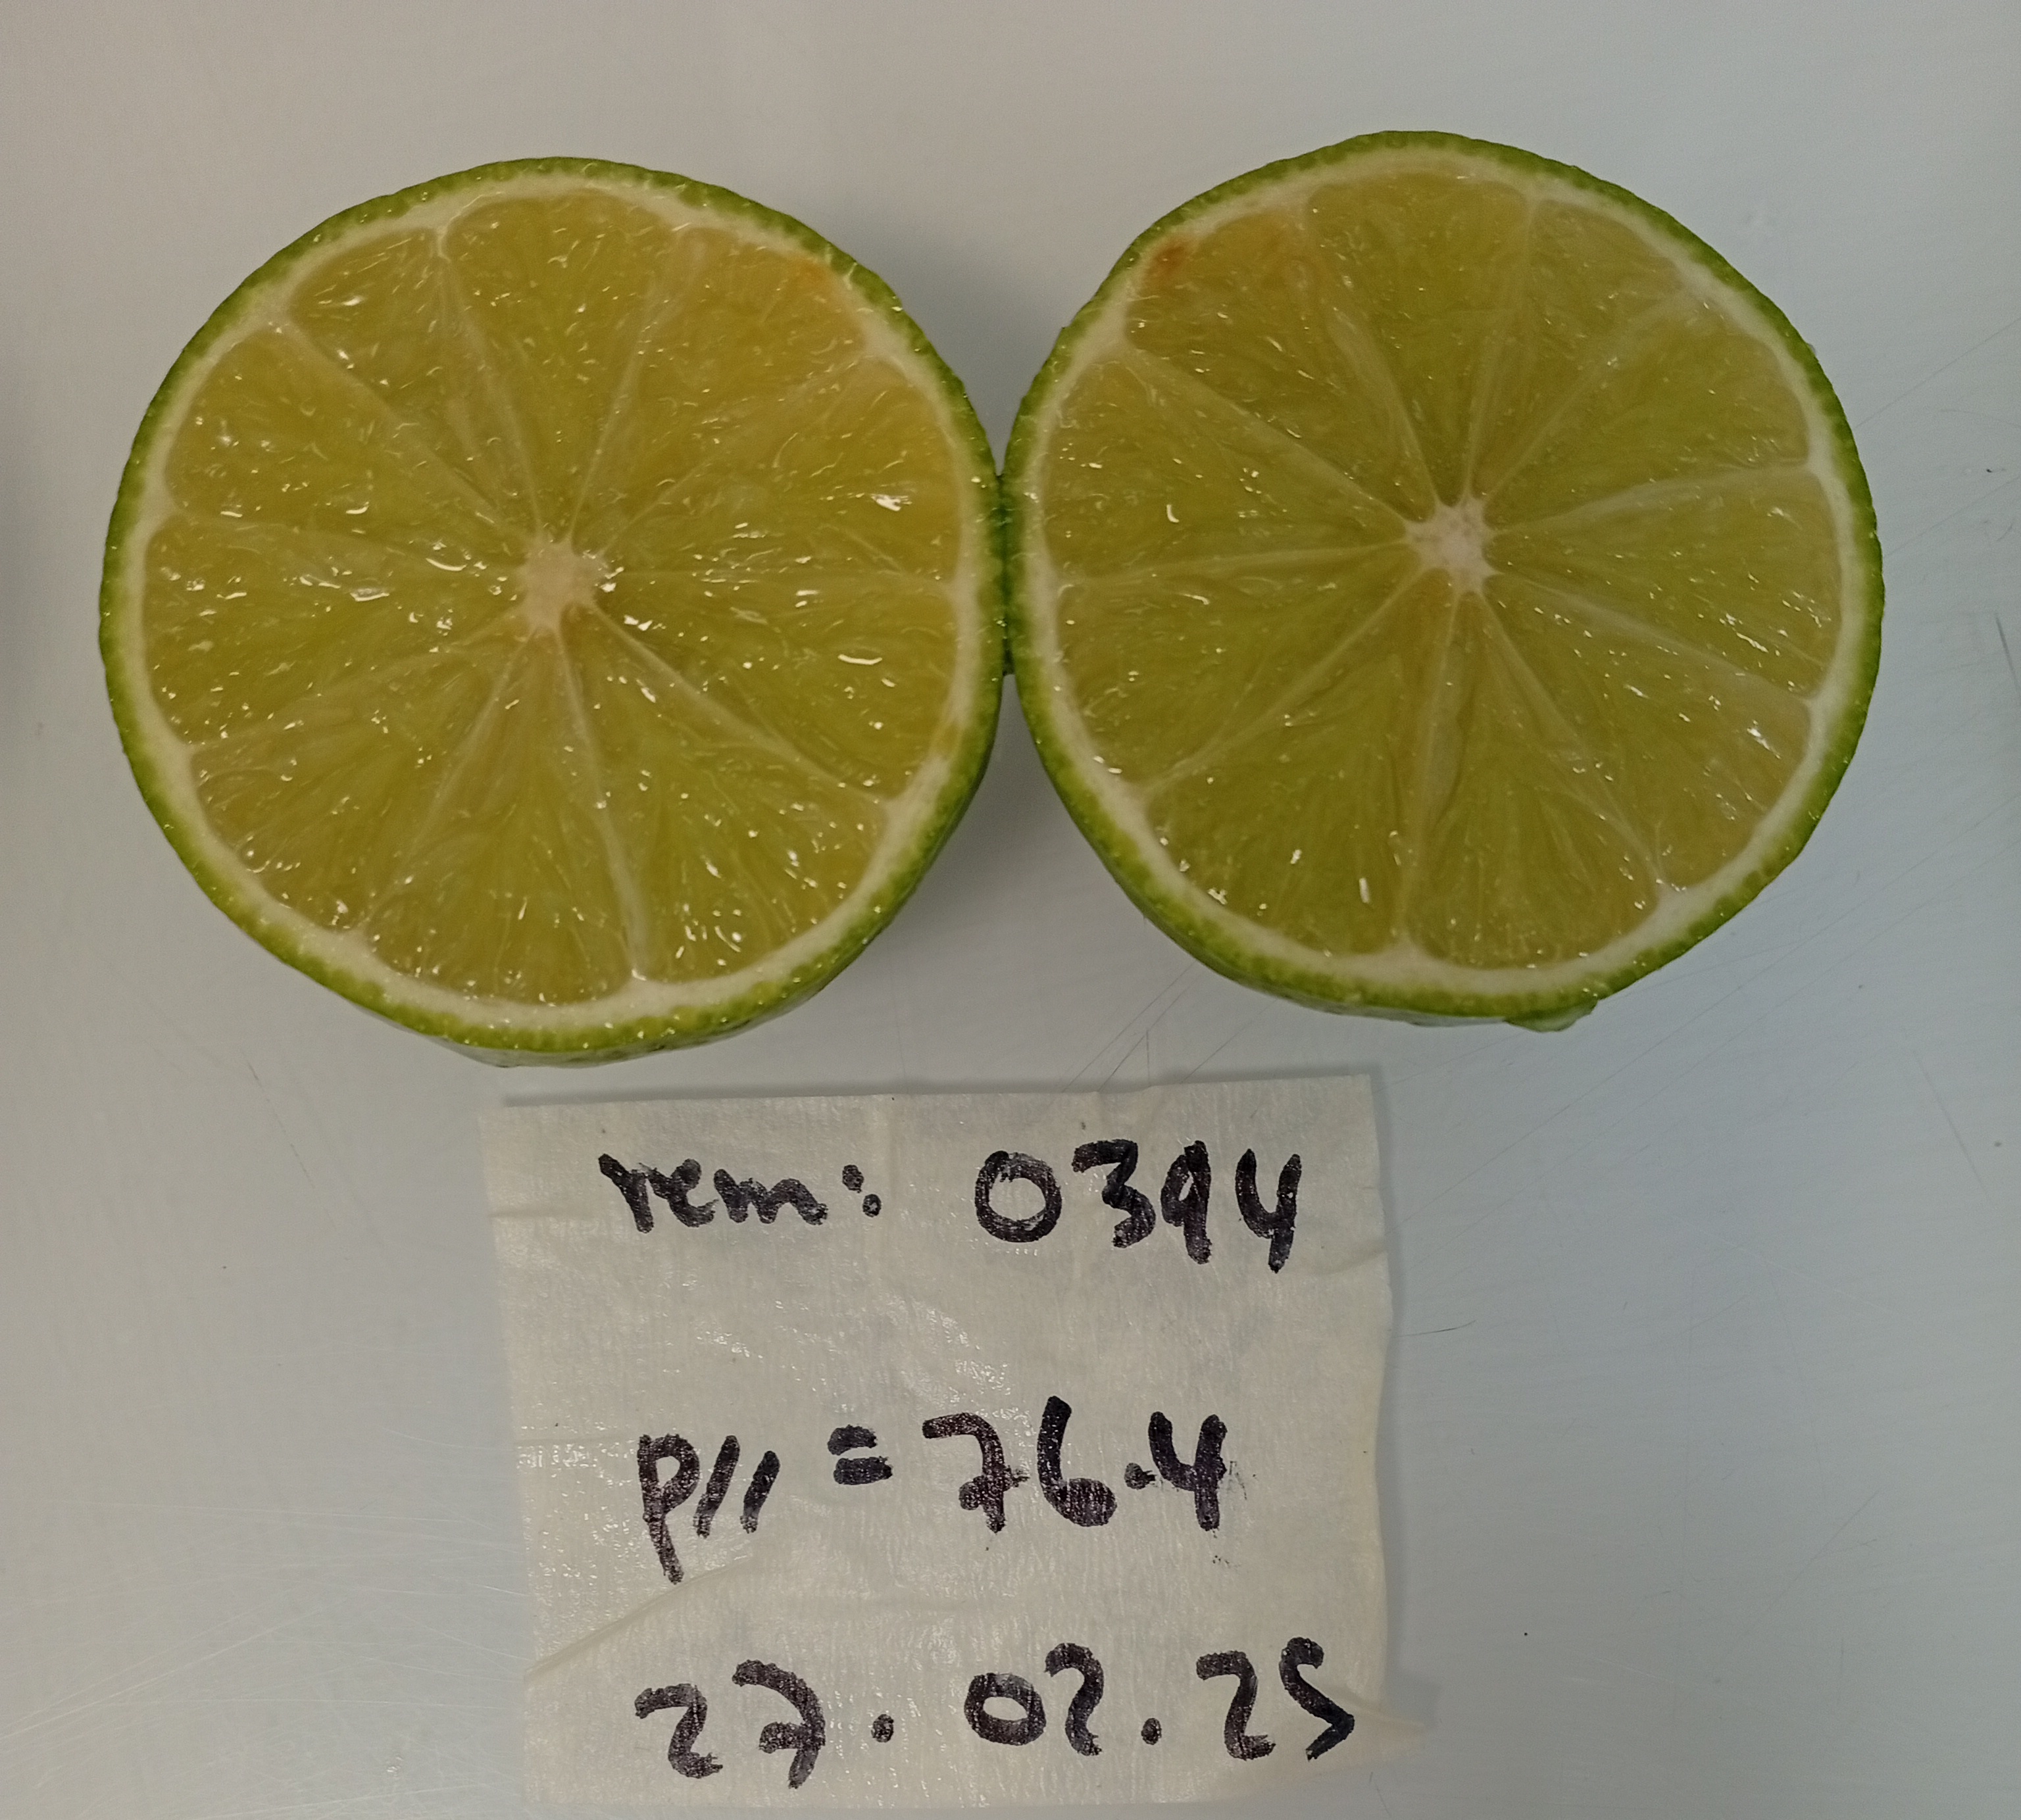 rem: 0394
p11 = 76.4
27.02.25